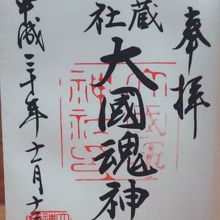 奉拝
蔵
社
大國魂神
平成三十年十一月十